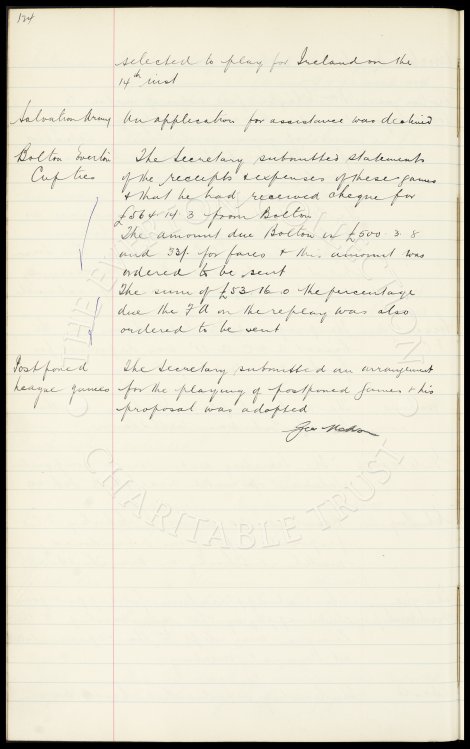 134
selected to play for Ireland on the
14th inst
Salvation Army An application for assistance was declined
Bolton Everton The Secretary submitted statements
Cup ties of the receipts & expenses of these games
& that he had received cheque for
£564 14 3 from Bolton
The amount due Bolton is £500 3 8
and 33/- for fares & this amount was
ordered to be sent
The sum of £53 16 0 the percentage
due the F A on the replay was also
ordered to be sent
Postponed The Secretary submitted an arrangement
League games for the playing of postponed games & his
proposal was adopted
CHARITABLE TRUST